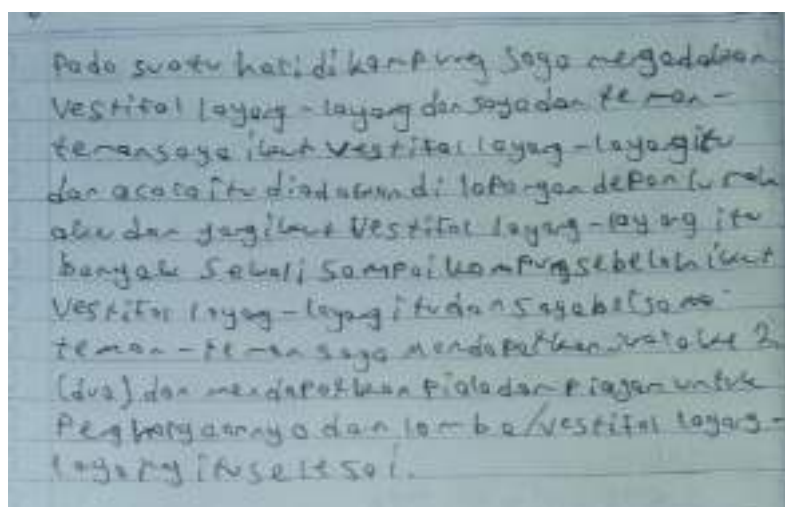 Pada suatu hari di kampung saya mengadakan
Vestifal layang-layang dan saya dan teman-
teman saya ikut Vestifal layang-layang itu
dan acara itu diadakan di lapangan depan rumah
aku dan yang ikut Vestifal layang-layang itu
banyak sekali sampai kampung sebelah ikut
Vestifal layang-layang itu dan saya bersama
teman-teman saya mendapatkan juara ke 2
(dua) dan mendapatkan piala dan piagam untuk
Penghargaannya dan lomba/vestifal layang-
layang itu selesai.